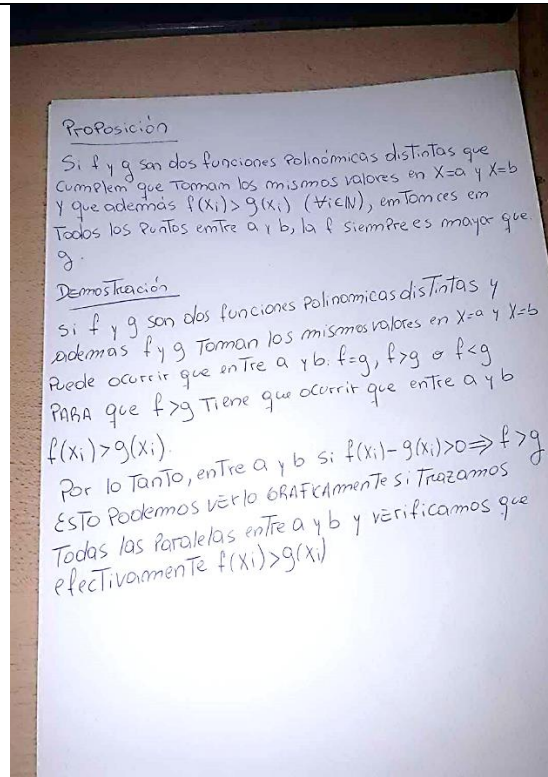 Proposición
Si f y g son dos funciones Polinómicas distintas que
cumplem que Toman los mismos valores en X=a y X=b
y que además f(xi)>g(xi) (∀i∈N), emTomces em
Todos los Puntos emTre a y b, la f siempre es mayor que
g.
Demostración
Si f y g son dos funciones Polinomicas disTintas y
además f y g Toman los mismos valores en X=a y X=b
Puede ocurrir que enTre a y b: f=g, f>g o f<g
PARA que f>g Tiene que ocurrir que entre a y b
f(xi)>g(xi).
Por lo TanTo, enTre a y b si f(xi)-g(xi)>0⇒f>g
ESTO Podemos vErlo GRAFicAmenTe si Trazamos
Todas las Paralelas enTre a y b y vErificamos que
efecTivamenTe f(xi)>g(xi)